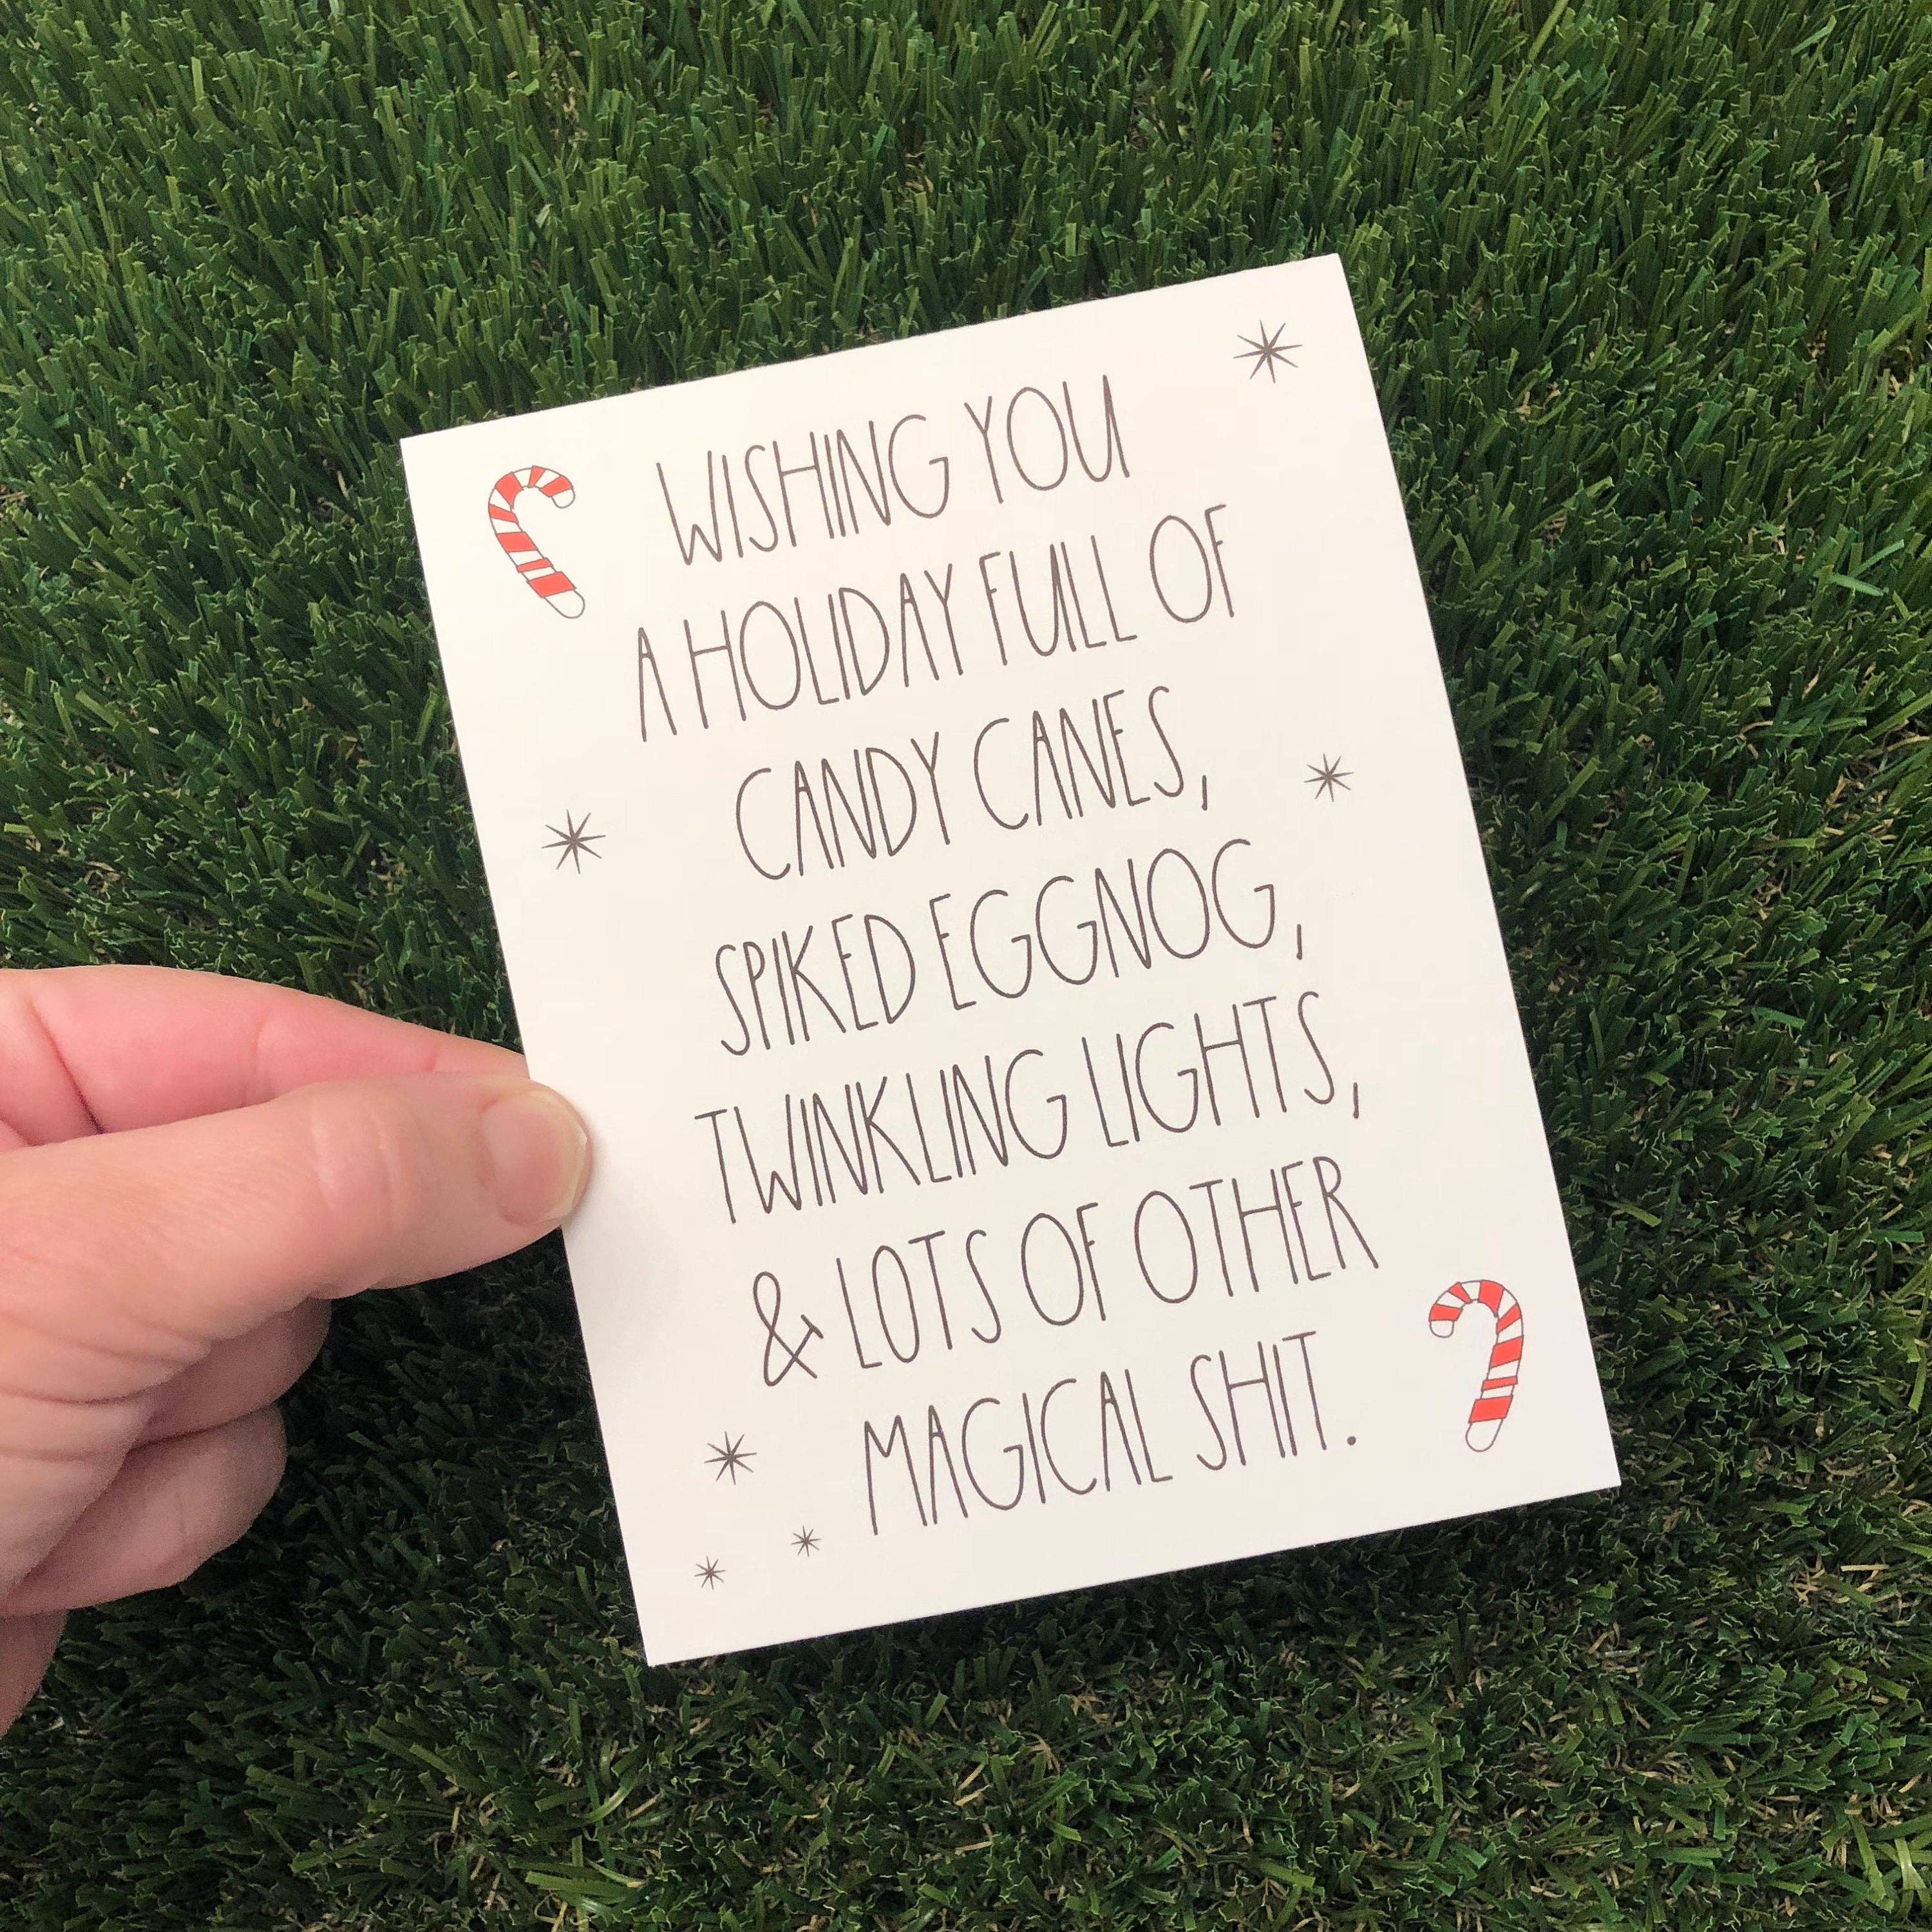 WISHING YOU
A HOLIDAY FULL OF
CANDY CANES,
SPIKED EGGNOG,
TWINKLING LIGHTS,
& LOTS OF OTHER
MAGICAL SHIT.